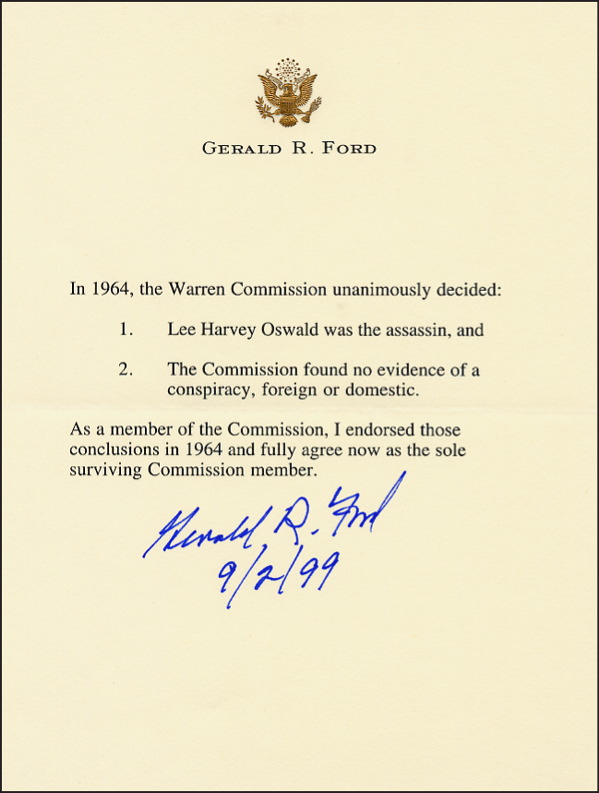 GERALD R. FORD
In 1964, the Warren Commission unanimously decided:
1. Lee Harvey Oswald was the assassin, and
2. The Commission found no evidence of a
conspiracy, foreign or domestic.
As a member of the Commission, I endorsed those
conclusions in 1964 and fully agree now as the sole
surviving Commission member.
Gerald R. Ford
9/2/99